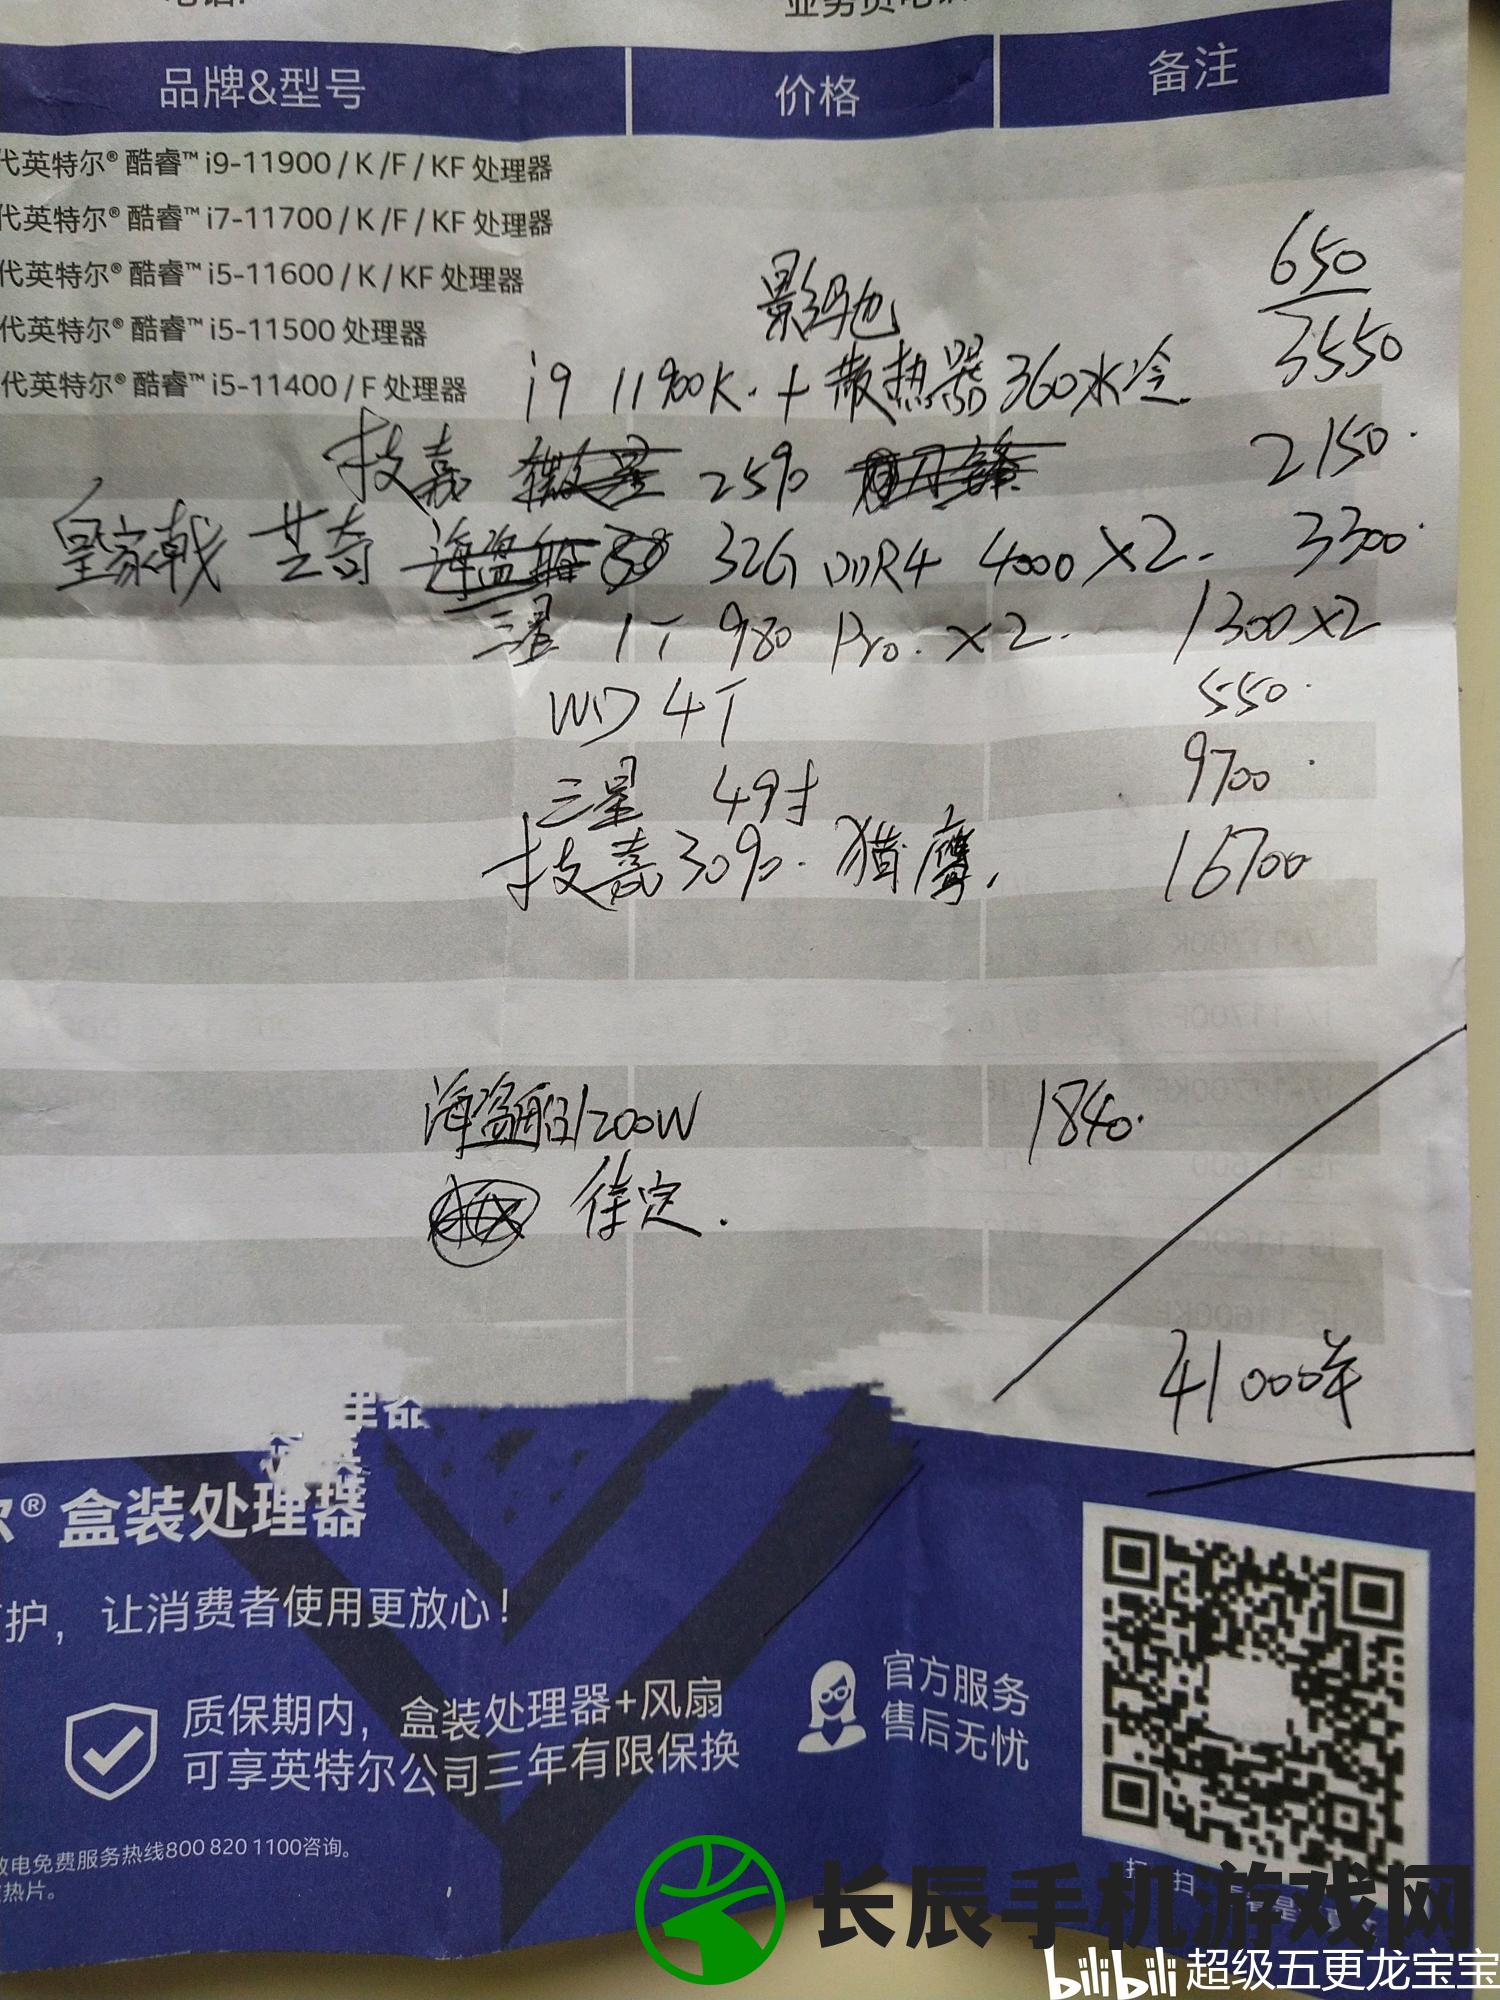 品牌&型号 价格 备注
代英特尔®酷睿™ i9-11900 / K /F / KF 处理器
代英特尔®酷睿™ i7-11700 / K /F / KF 处理器
代英特尔®酷睿™ i5-11600 / K / KF 处理器
代英特尔®酷睿™ i5-11500 处理器
代英特尔®酷睿™ i5-11400 / F 处理器
影驰 650
i9 11900K + 散热器 360水冷 3550
技嘉 微星 Z590 2150
皇家戟 芝奇 海盗船 32G DDR4 4000 X2 3300
三星 1T 980 Pro X2 1300X2
WD 4T 550
三星 49寸 9700
技嘉 3090 猎鹰 16700
海盗船1200W 1840
待定
41000
尔®盒装处理器
护，让消费者使用更放心！
质保期内，盒装处理器+风扇
可享英特尔公司三年有限保换
官方服务
售后无忧
致电免费服务热线800 820 1100咨询。
热片。
长辰手机游戏网
bilibili 超级五更龙宝宝